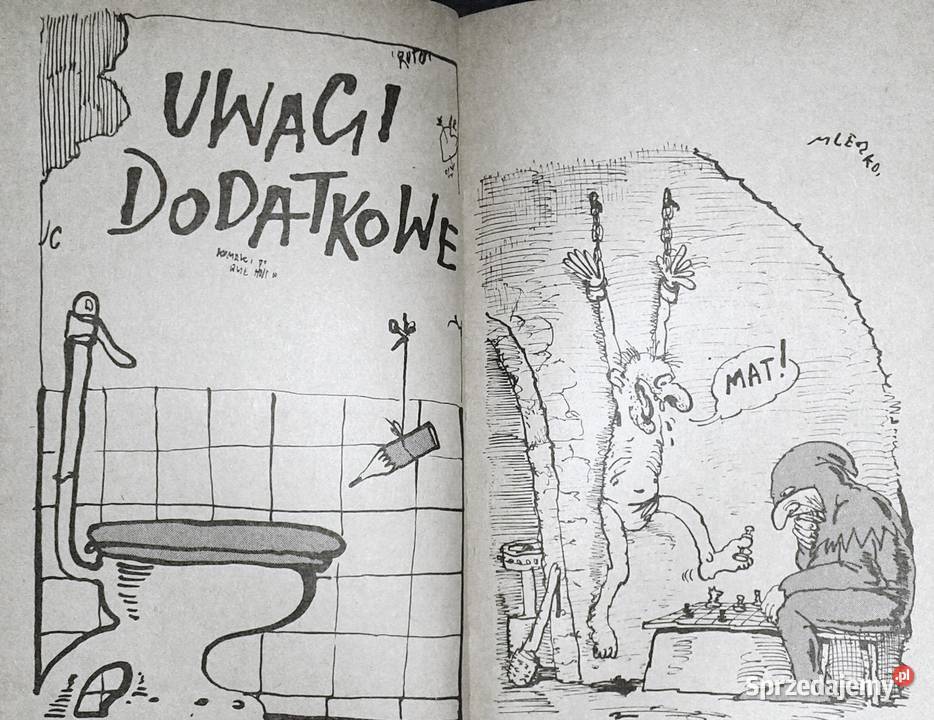 UWAGI
DODATKOWE
MLECZKO.
MAT!
Sprzedajemy.pl